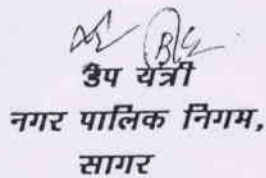 उप यंत्री
नगर पालिक निगम,
सागर